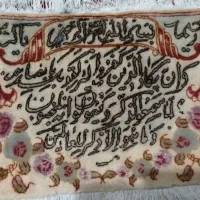 بسم الله الرحمن الرحيم
وان يكاد الذين كفروا ليزلقونك بابصار
هم لما سمعوا الذكر و يقولون انه لمجنون
و ما هو الا ذكر للعالمين